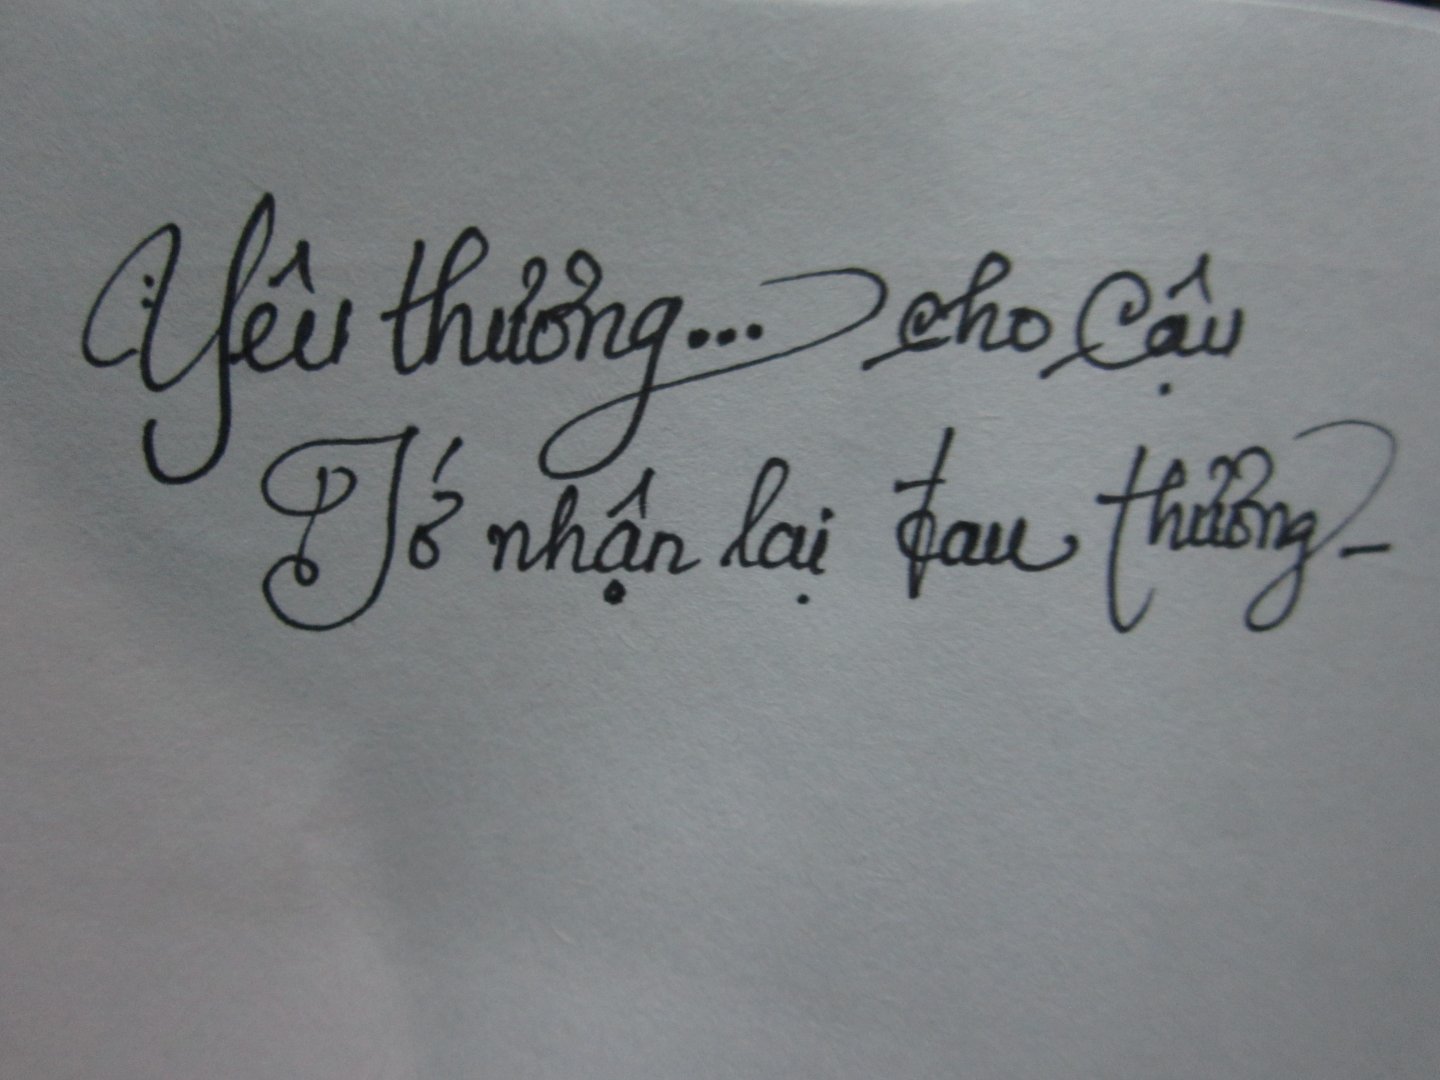 Yêu thương... cho cậu
Tớ nhận lại đau thương_